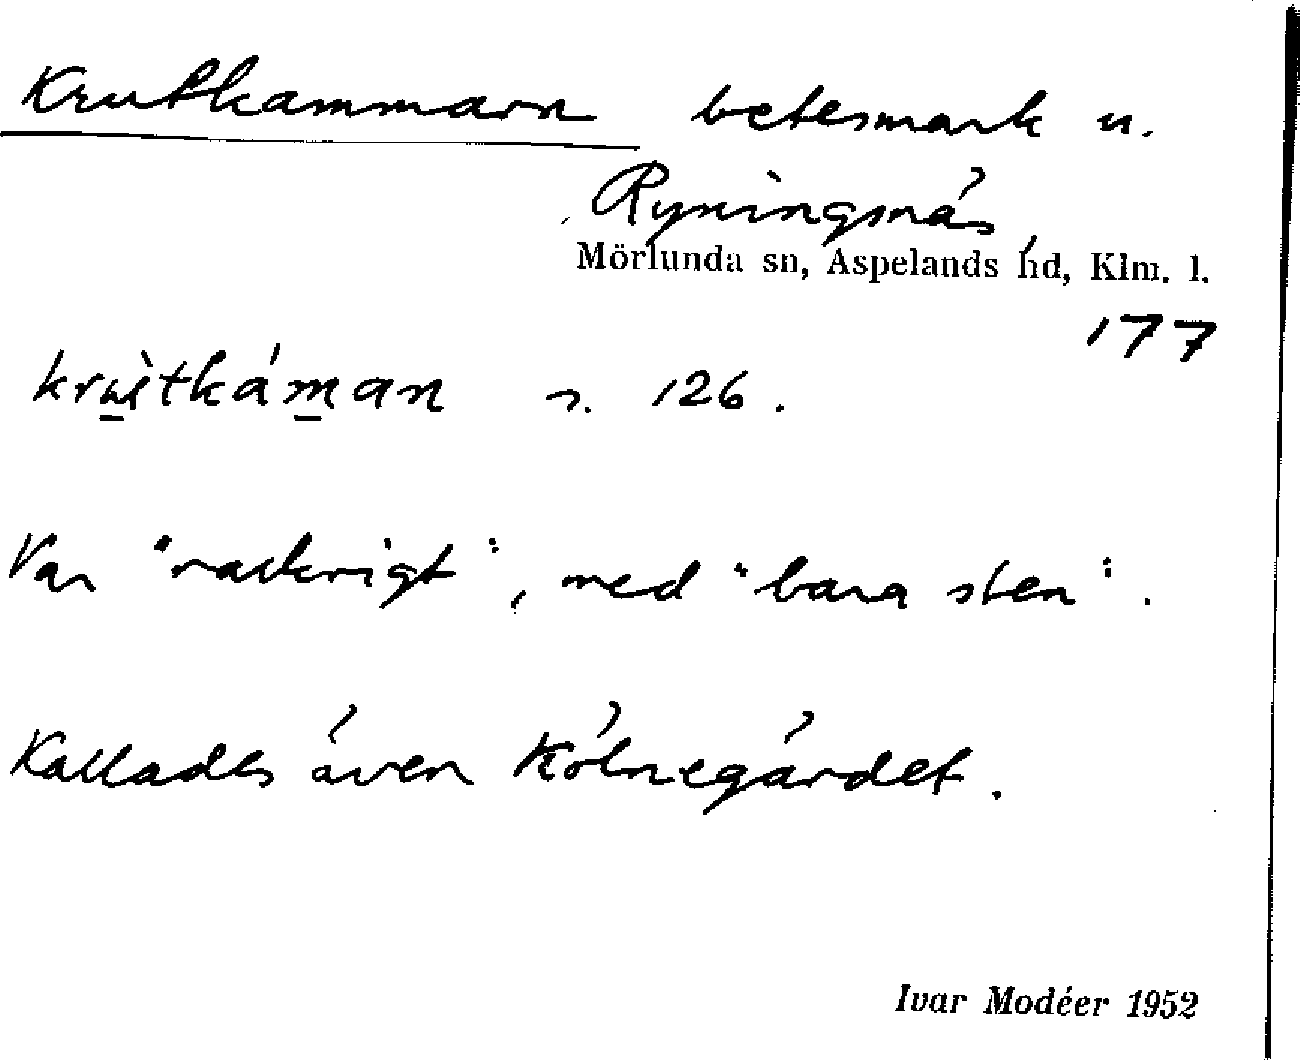 Krutkammarn betesmark u.
Ryningsnäs
Mörlunda sn, Aspelands hd, Klm. l.
177
krùtkáman s. 126.
Var "vackrigt", med "bara sten".
Kallades även Kölnegärdet.
Ivar Modéer 1952